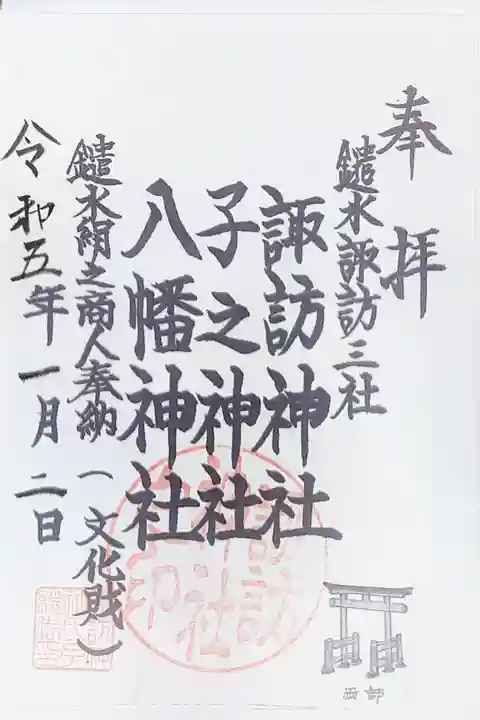 奉拝
鑓水諏訪三社
諏訪神社
子之神社
八幡神社
鑓水絹之商人奉納(文化財)
令和五年一月二日
西部